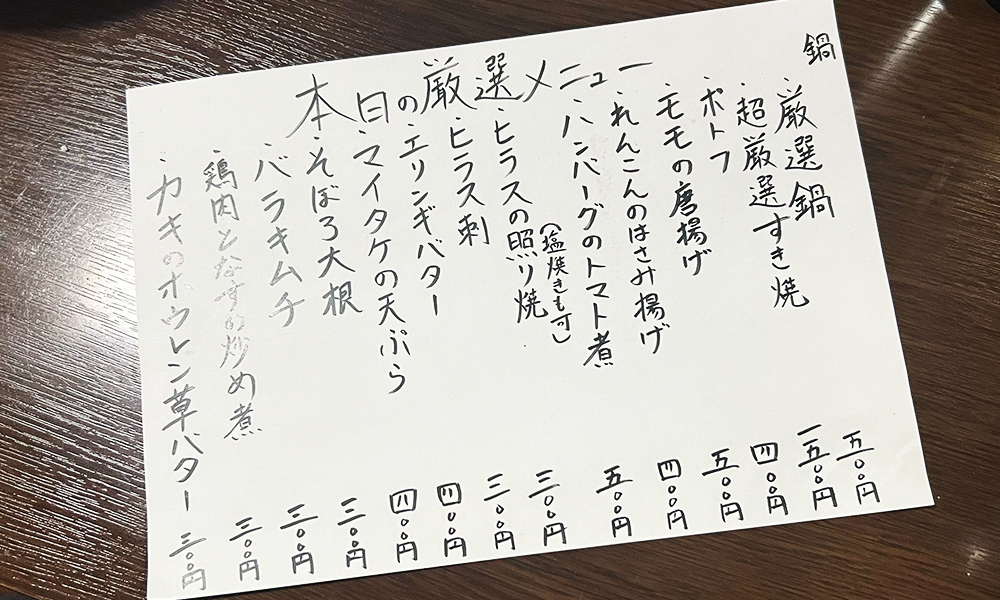 本日の厳選メニュー
鍋
・厳選鍋 五〇〇円
・超厳選すき焼 一五〇〇円
・ポトフ 四〇〇円
・モモの唐揚げ 五〇〇円
・れんこんのはさみ揚げ 四〇〇円
・ハンバーグのトマト煮 五〇〇円
・ヒラスの照り焼 三〇〇円
(塩焼きも可)
・ヒラス刺 三〇〇円
・エリンギバター 四〇〇円
・マイタケの天ぷら 四〇〇円
・そぼろ大根 三〇〇円
・バラキムチ 三〇〇円
・鶏肉となすの炒め煮 三〇〇円
・カキのオウレン草バター 三〇〇円